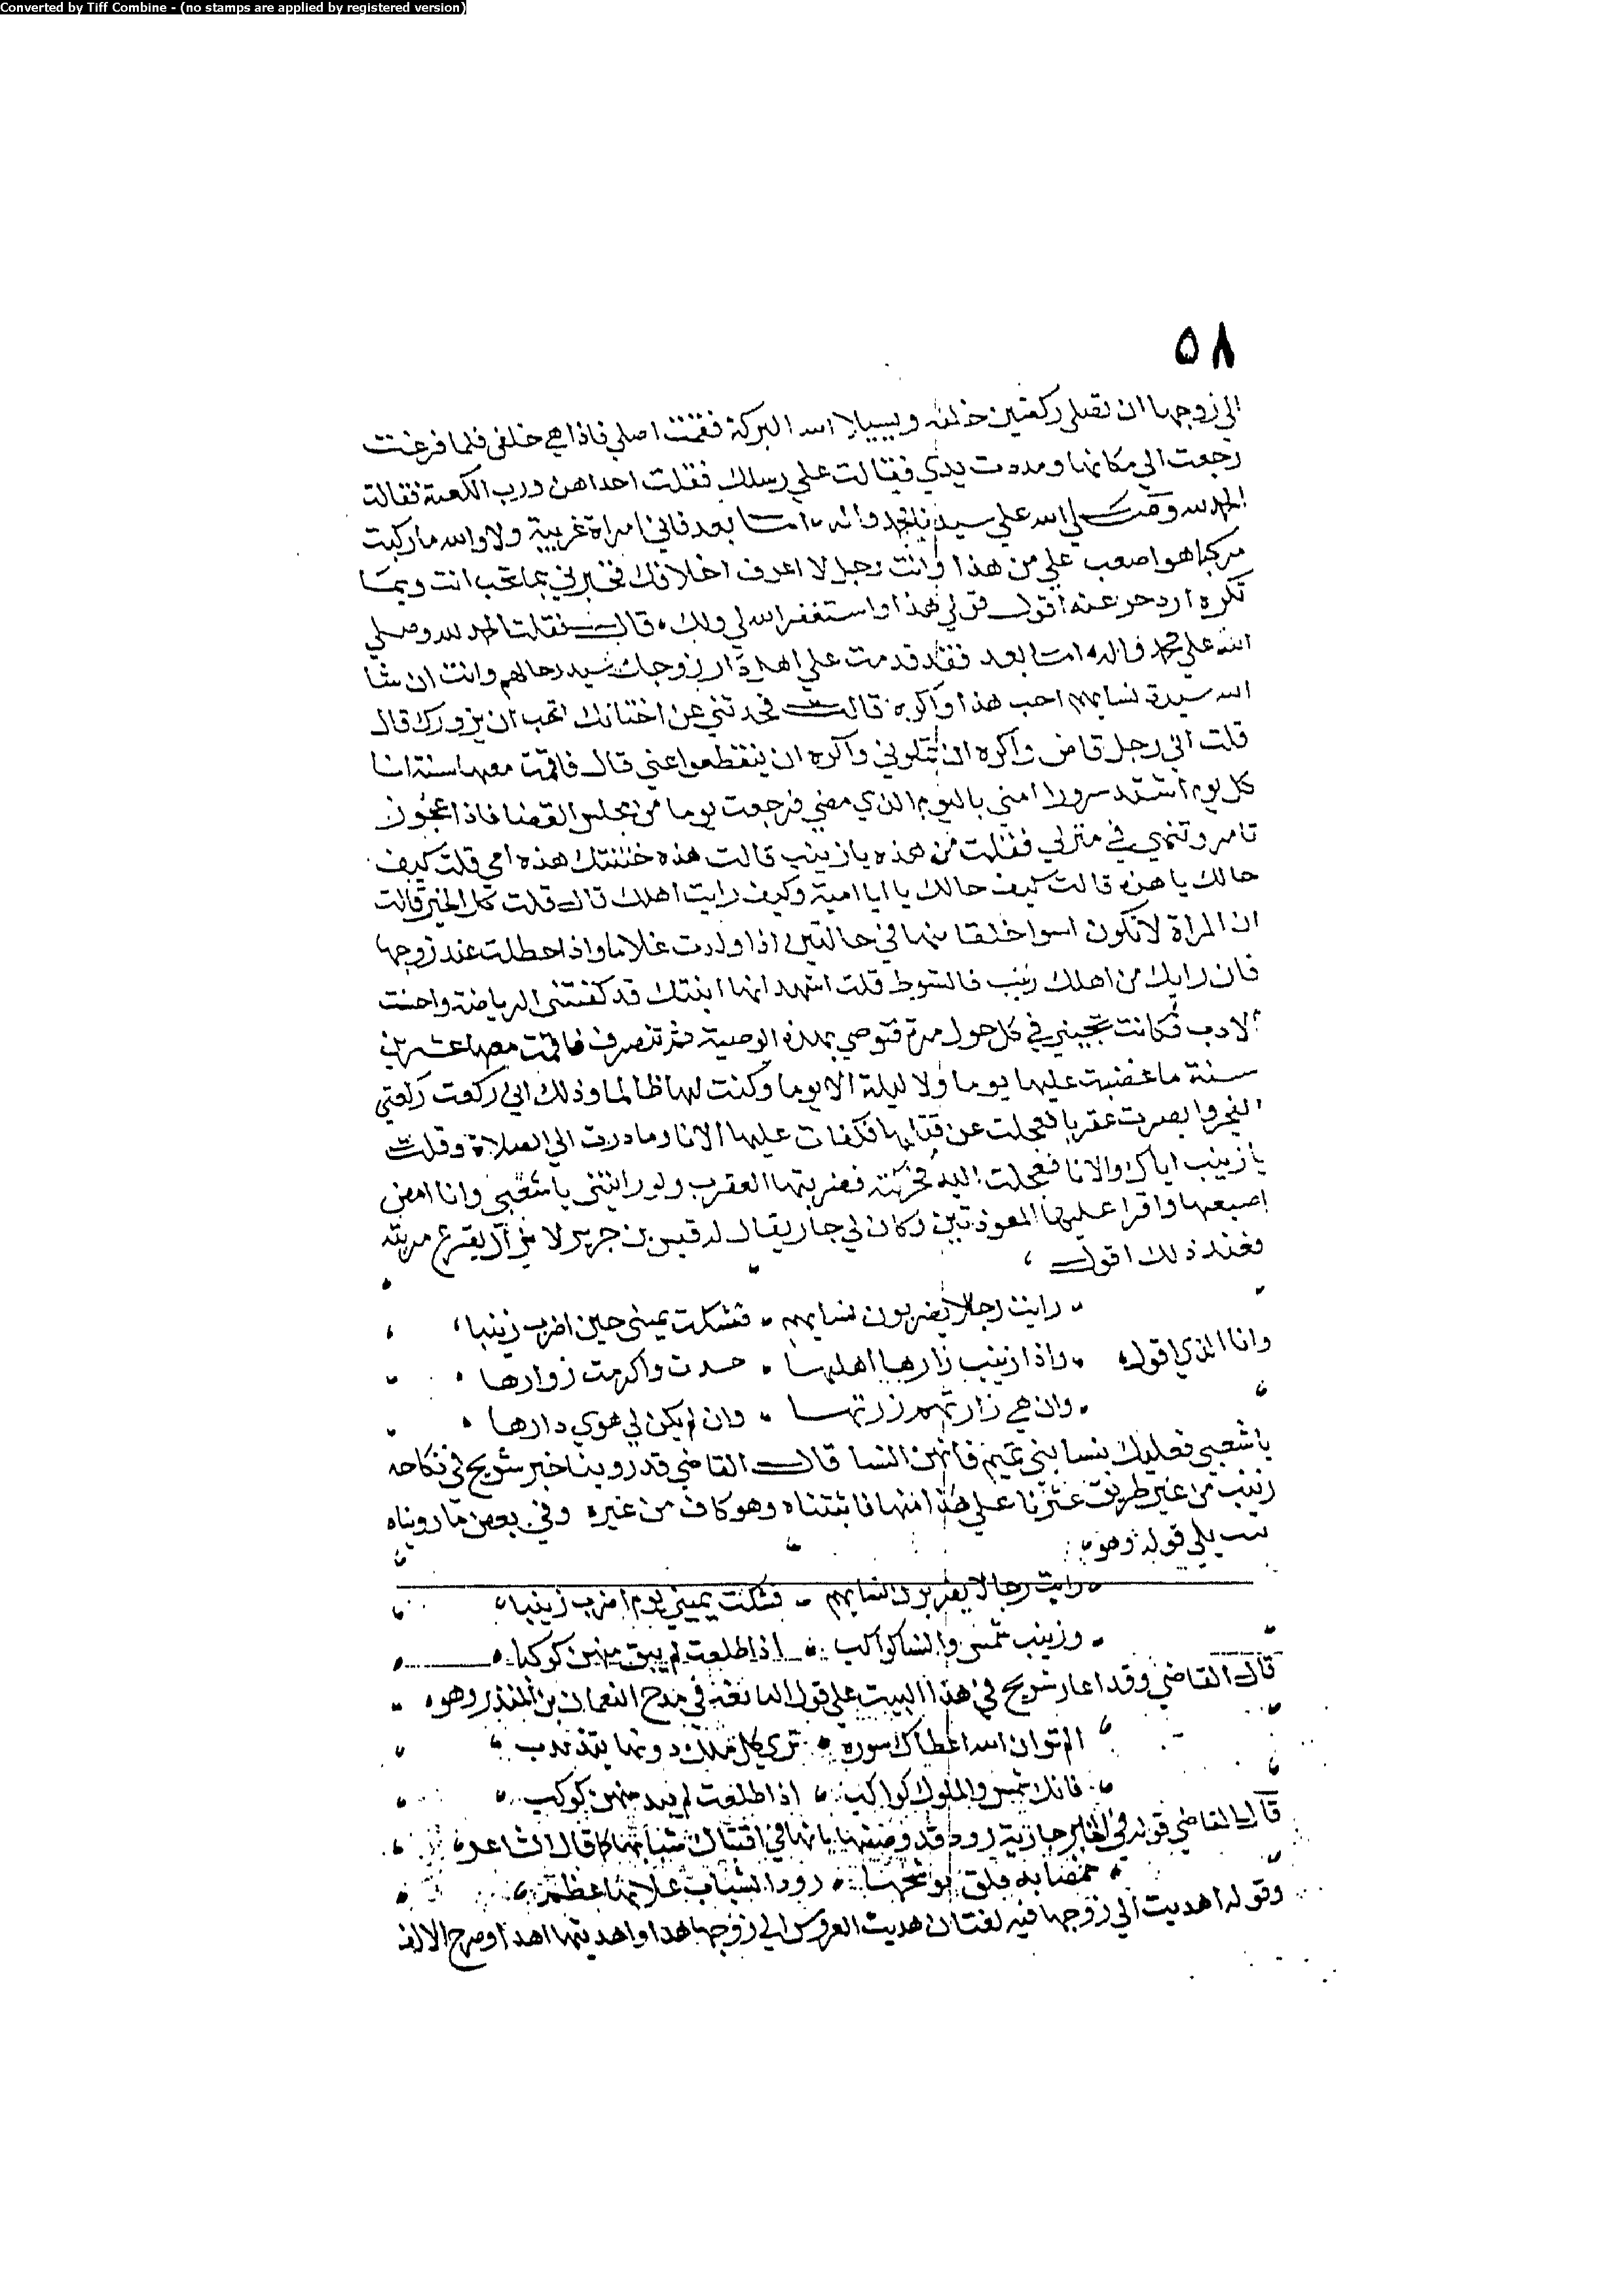 Converted by Tiff Combine - (no stamps are applied by registered version)
٥٨
الي زوجها ان تصلي ركعتين خلفه ويسيلا الله البركة فقمت اصلي فاذا هي خلفي فلما فرغت
رجعت الي مكانها ومددت يدي فقالت علي رسلك فقلت احداهن ورب الكعبة فقالت
الحمد لله وصلي الله علي سيدنا محمد واله اما بعد فاني امراة غريبة ولا والله ما ركبت
مركبا هو اصعب علي من هذا وانت رجل لا اعرف اخلاقك فخبرني بما تحب انت وبما
تكره ازدجر عنه اقول قولي هذا واستغفر الله لي ولك قال فقلت الحمد لله وصلي
الله علي محمد واله اما بعد فقد قدمت علي اهل دار زوجك سيد رجالهم وانت ان شا
الله سيدة نسايهم احب هذا واكره قالت فحدثني عن اختانك اتحب ان يزورك قال
قلت اني رجل قاض واكره ان تملوني واكره ان ينقطعوا عني قال فاقمت معها سنة انا
كل يوم اشد سرورا مني باليوم الذي مضي فرجعت يوما من مجلس القضا فاذا عجوز
تامر وتنهي في منزلي فقلت من هذه يا زينب قالت هذه ختنتك هذه امي قلت كيف
حالك يا هذه قالت كيف حالك يا ابا امية وكيف رايت اهلك قال قلت كل الخير قالت
ان المراة لا تكون اسوا خلقا منها في حالتين اذا ولدت غلاما واذا حظيت عند زوجها
فان رابك من اهلك زينب فالسوط قلت اشهد انها ابنتك قد كفيتني الرياضة واحسنت
الادب فكانت تجيني في كل حول مرة فتوصي بهذه الوصية ثم تنصرف فاقمت معها عشرين
سنة ما غضبت عليها يوما ولا ليلة الا يوما وكنت لها ظالما وذلك اني ركعت ركعتي
الفجر وابصرت عقربا فعجلت عن قتلها فكفات عليها الانا وبادرت الي الصلاة وقلت
يا زينب اياك والانا فعجلت اليه فحركته فضربتها العقرب ولو رايتني يا شعبي وانا امص
اصبعها واقرا عليها المعوذتين وكان لي جار يقال له قيس بن جرير لا يزال يقرع مريته
فعند ذلك اقول
رايت رجالا يضربون نسايهم فشلت يميني حين اضرب زينبا
وانا الذي اقول واذا زينب زارها اهلها حمدت واكرمت زوارها
وان هي زارتهم زرتها وان لم يكن لي هوي دارها
يا شعبي فعليك بنسا بني تميم فانهن النسا قال القاضي قد روينا خبر شريح في نكاحه
زينب من غير طريق عثرنا علي هذا منها فاثبتناه وهو كاف من غيره وفي بعض ما رويناه
يلي قوله وهو
رايت رجالا يضربون نسايهم فشلت يميني يوم اضرب زينبا
وزينب شمس والنسا كواكب اذا طلعت لم يبق منهن كوكبا
قال القاضي وقد اعار شريح في هذا البيت علي قول النابغة في مدح النعمان بن المنذر وهو
الم تر ان الله اعطاك سورة تري كل ملك دونها يتذبذب
فانك شمس والملوك كواكب اذا طلعت لم يبد منهن كوكب
قال القاضي قوله في الخبر جارية رود وقد وصفها بانها في اقتبال شبابها كما قال الشاعر
خمصانة قلق موشحها رود الشباب علا بها عظم
وقوله اهديت الي زوجها فيه لغتان هديت العروس الي زوجها هدا واهديتها اهدا وصرح الالف